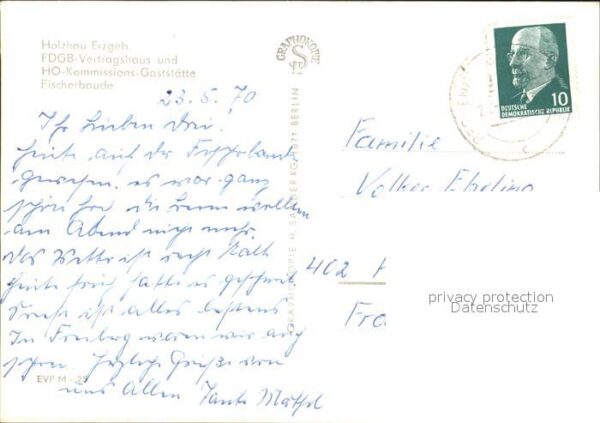 Holzhau Erzgeb.
FDGB-Vertragshaus und
HO-Kommissions-Gaststätte
Fischerbaude
23.5.70
Ihr Lieben Drei!
Heute auf der Fischerbaude
gewesen. es war ganz
schön hei die wollen
am Abend nicht mehr.
Das Wetter ist recht kalt
heute früh hatte es geschneit
sonst ist alles bestens
In Freiberg waren wir auch
schon. Herzliche Grüße von
uns Allen Tante
EVP M -,25
GRAPHOKOPIE H. SANDER KG 1071 BERLIN
GRAPHOKOPIE
DEUTSCHE
DEMOKRATISCHE REPUBLIK
10
Familie
Volker Ebeling
402 H
Fra
privacy protection
Datenschutz